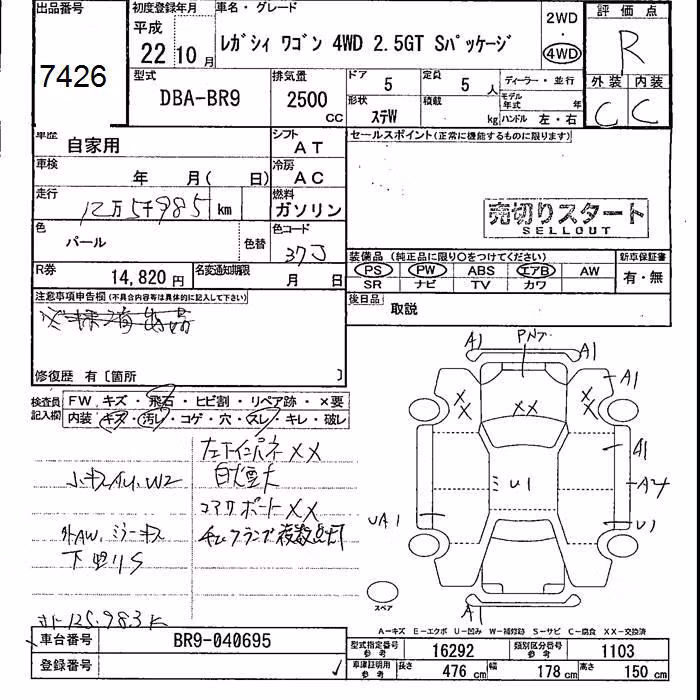 出品番号
7426
初度登録年月
平成
22 10月
車名・グレード
レガシィ ワゴン 4WD 2.5GT Sパッケージ
2WD
・
4WD
評価点
R
外装 内装
C C
型式
DBA-BR9
排気量
2500
CC
ドア
5
定員
5 人
形状
ステW
積載
kg
ディーラー・並行
モデル年式 年
ハンドル 左・右
車歴
自家用
シフト
AT
車検
年 月( 日)
冷房
AC
走行
12万5千985 km
燃料
ガソリン
色
パール
色替
色コード
37J
R券
14,820 円
名変通知期限
月 日
セールスポイント(正常に機能するものに限ります)
売切りスタート
SELLOUT
装備品(純正品に限り○をつけてください)
PS PW ABS エアB AW
SR ナビ TV カワ
新車保証書
有・無
後日品
取説
注意事項申告欄(不具合内容等は具体的に記入して下さい)
修復歴 有〔箇所 〕
検査員記入欄
FW キズ・飛石・ヒビ割・リペア跡・×要
内装 キズ・汚レ・コゲ・穴・スレ・キレ・破レ
左下インパネXX
小キズAU、W2
コアサポートXX
外AW、ミラーキズ
チェックランプ複数点灯
下回りS
125,983K
A1 PNT A1
A1
XX XX XX
A1
U1
A4
UA1
U1
A1
スペア
A-キズ E-エクボ U-凹み W-補修跡 S-サビ C-腐食 XX-交換済
車台番号
BR9-040695
登録番号
型式指定番号 参考
16292
類別区分番号 参考
1103
車庫証明用 参考
長さ 476 cm 幅 178 cm 高さ 150 cm